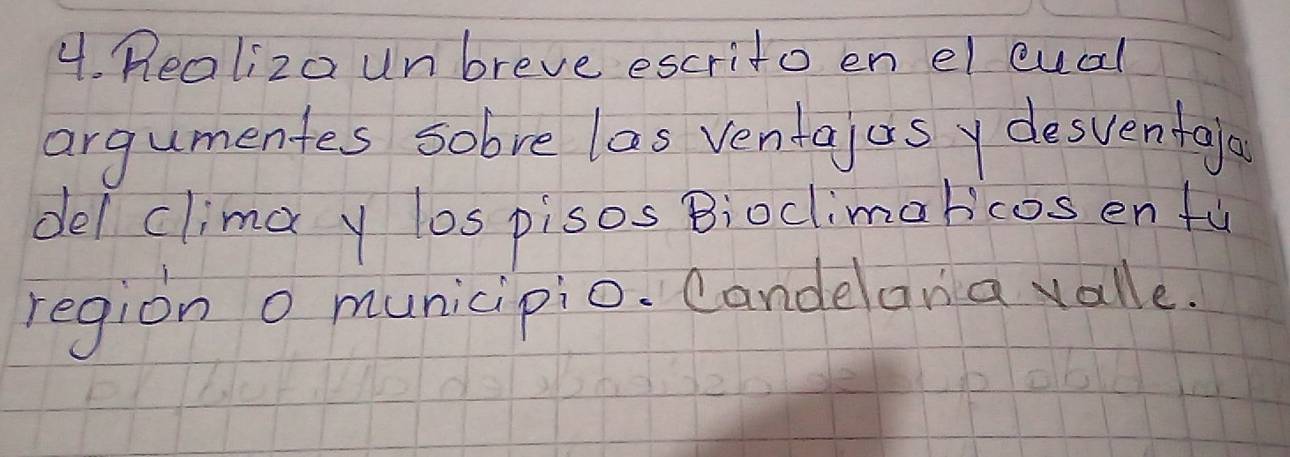 4. Realiza un breve escrito en el cual
argumentes sobre las ventajas y desventaja
del clima y los pisos Bioclimaticos en tú
región o municipio. Candelaria valle.